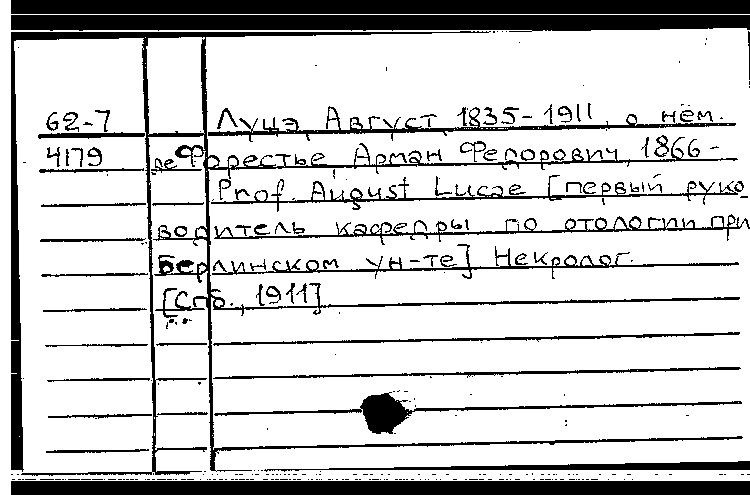 62-7 Луцэ, Август, 1835-1911, о нём.
4179 де Форестье, Арман Федорович, 1866-
Prof. August Lucae [первый руко
водитель кафедры по отологии при
Берлинском ун-те] Некролог.
[Спб., 1911]